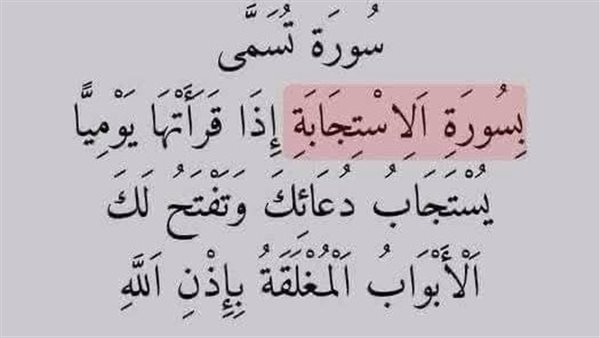 سُورَة تُسَمَّى
بِسُورَةِ اَلِاسْتِجَابَةِ إِذَا قَرَأَتْهَا يَوْمِيًّا
يُسْتَجَابُ دُعَائِكَ وَتَفْتَحُ لَكَ
اَلْأَبْوَابُ اَلْمُغْلَقَةُ بِإِذْنِ اَللَّهِ